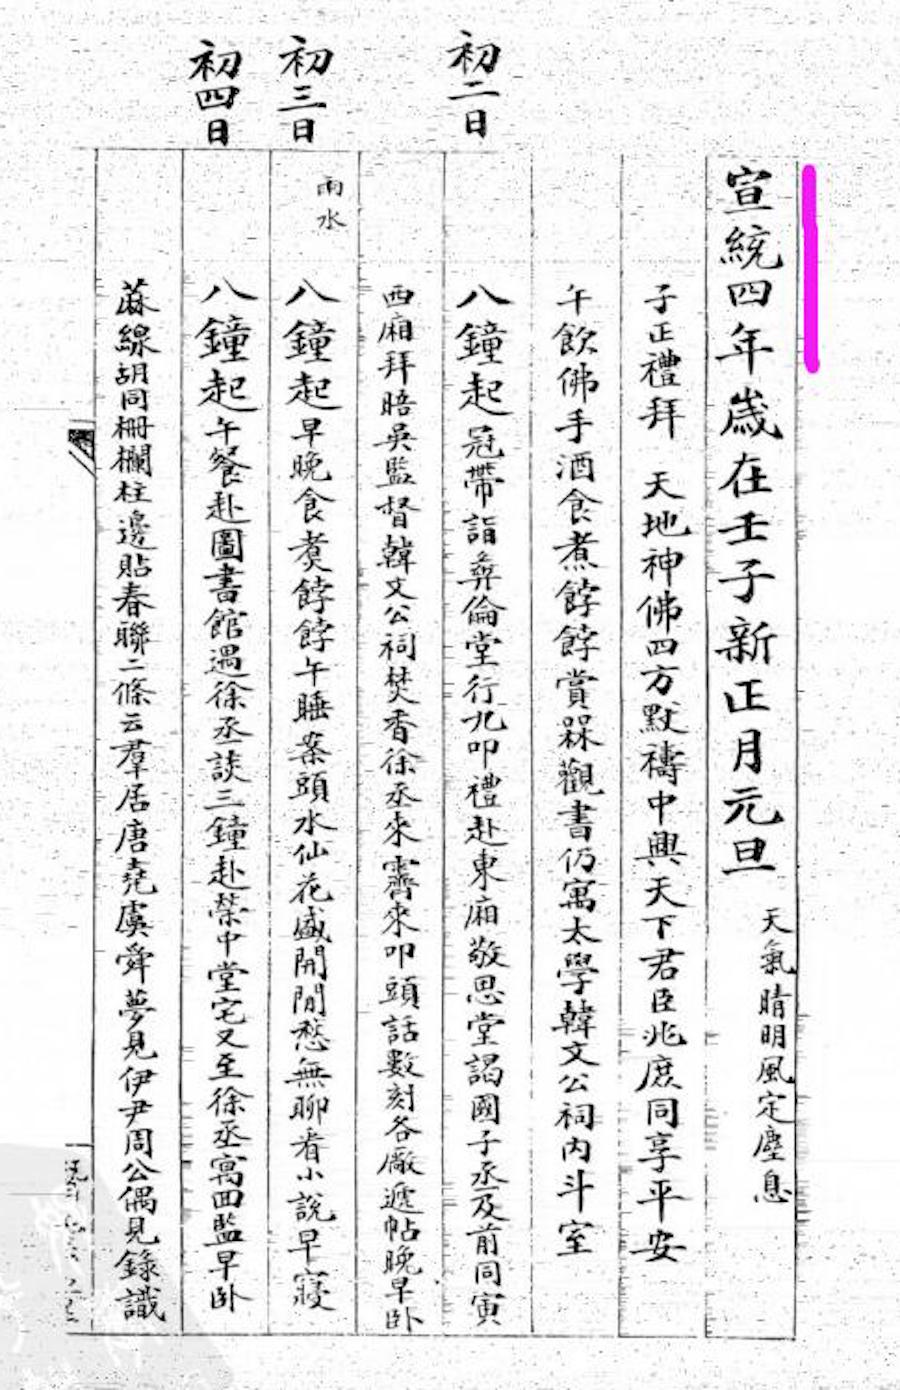 宣統四年歲在壬子新正月元旦 天氣晴明風定塵息
子正禮拜 天地神佛四方默禱中興天下君臣兆庶同享平安
午飲佛手酒食煮餑餑賞槑觀書仍寓太學韓文公祠內斗室
初二日
八鐘起冠帶詣彝倫堂行九叩禮赴東廂敬思堂謁國子丞及前同寅
西廂拜晤吳監督韓文公祠焚香徐丞來霽來叩頭話數刻各廠遞帖晚早卧
初三日
雨水
八鐘起早晚食煑餑餑午睡案頭水仙花盛開閒愁無聊看小說早寢
初四日
八鐘起午餐赴圖書館遇徐丞談三鐘赴榮中堂宅又至徐丞寓回監早卧
蔴線胡同柵欄柱邊貼春聯二條云羣居唐堯虞舜夢見伊尹周公偶見錄識